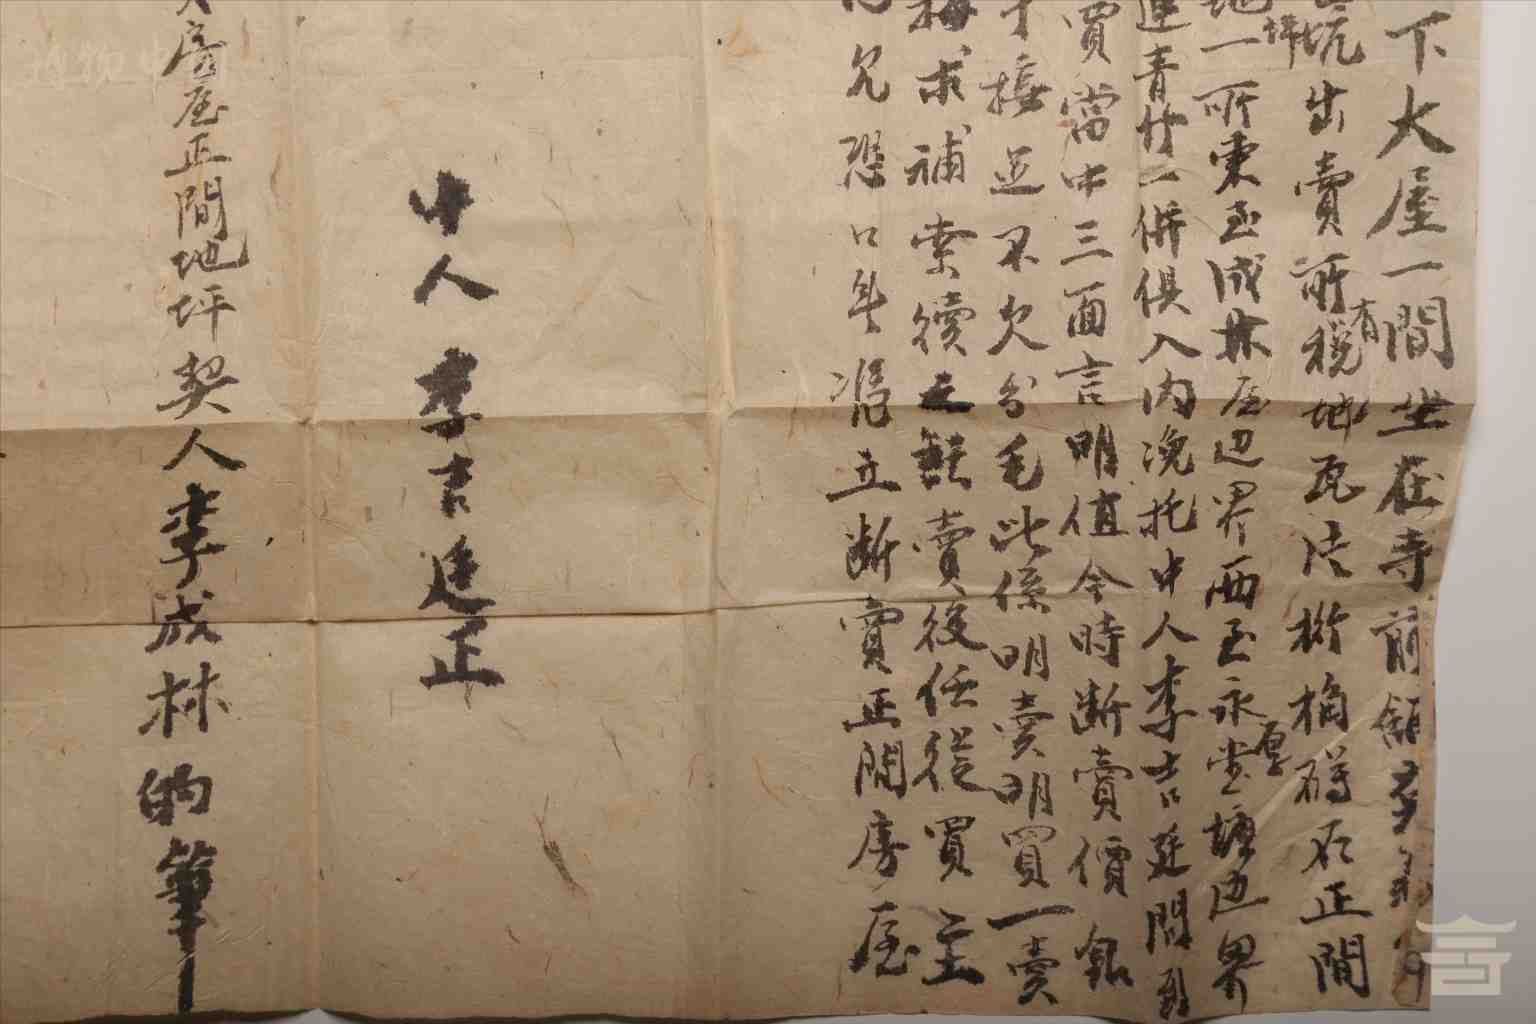 下大屋一間坐在寺前
有
坑出賣所税地瓦片桁桷磚石正間
坪
地一所東至成林屋边界西至永堂塘边界
厝
連青竹一併俱入内浼托中人李吉廷問到
買當中三面言明值今時断賣價銀
手接足不欠分毛此係明卖明買一卖
悔求補索續之難賣後任從買主
允恐口無憑立断賣正間房屋
中人李吉廷正
房屋正間地坪契人李成林的筆